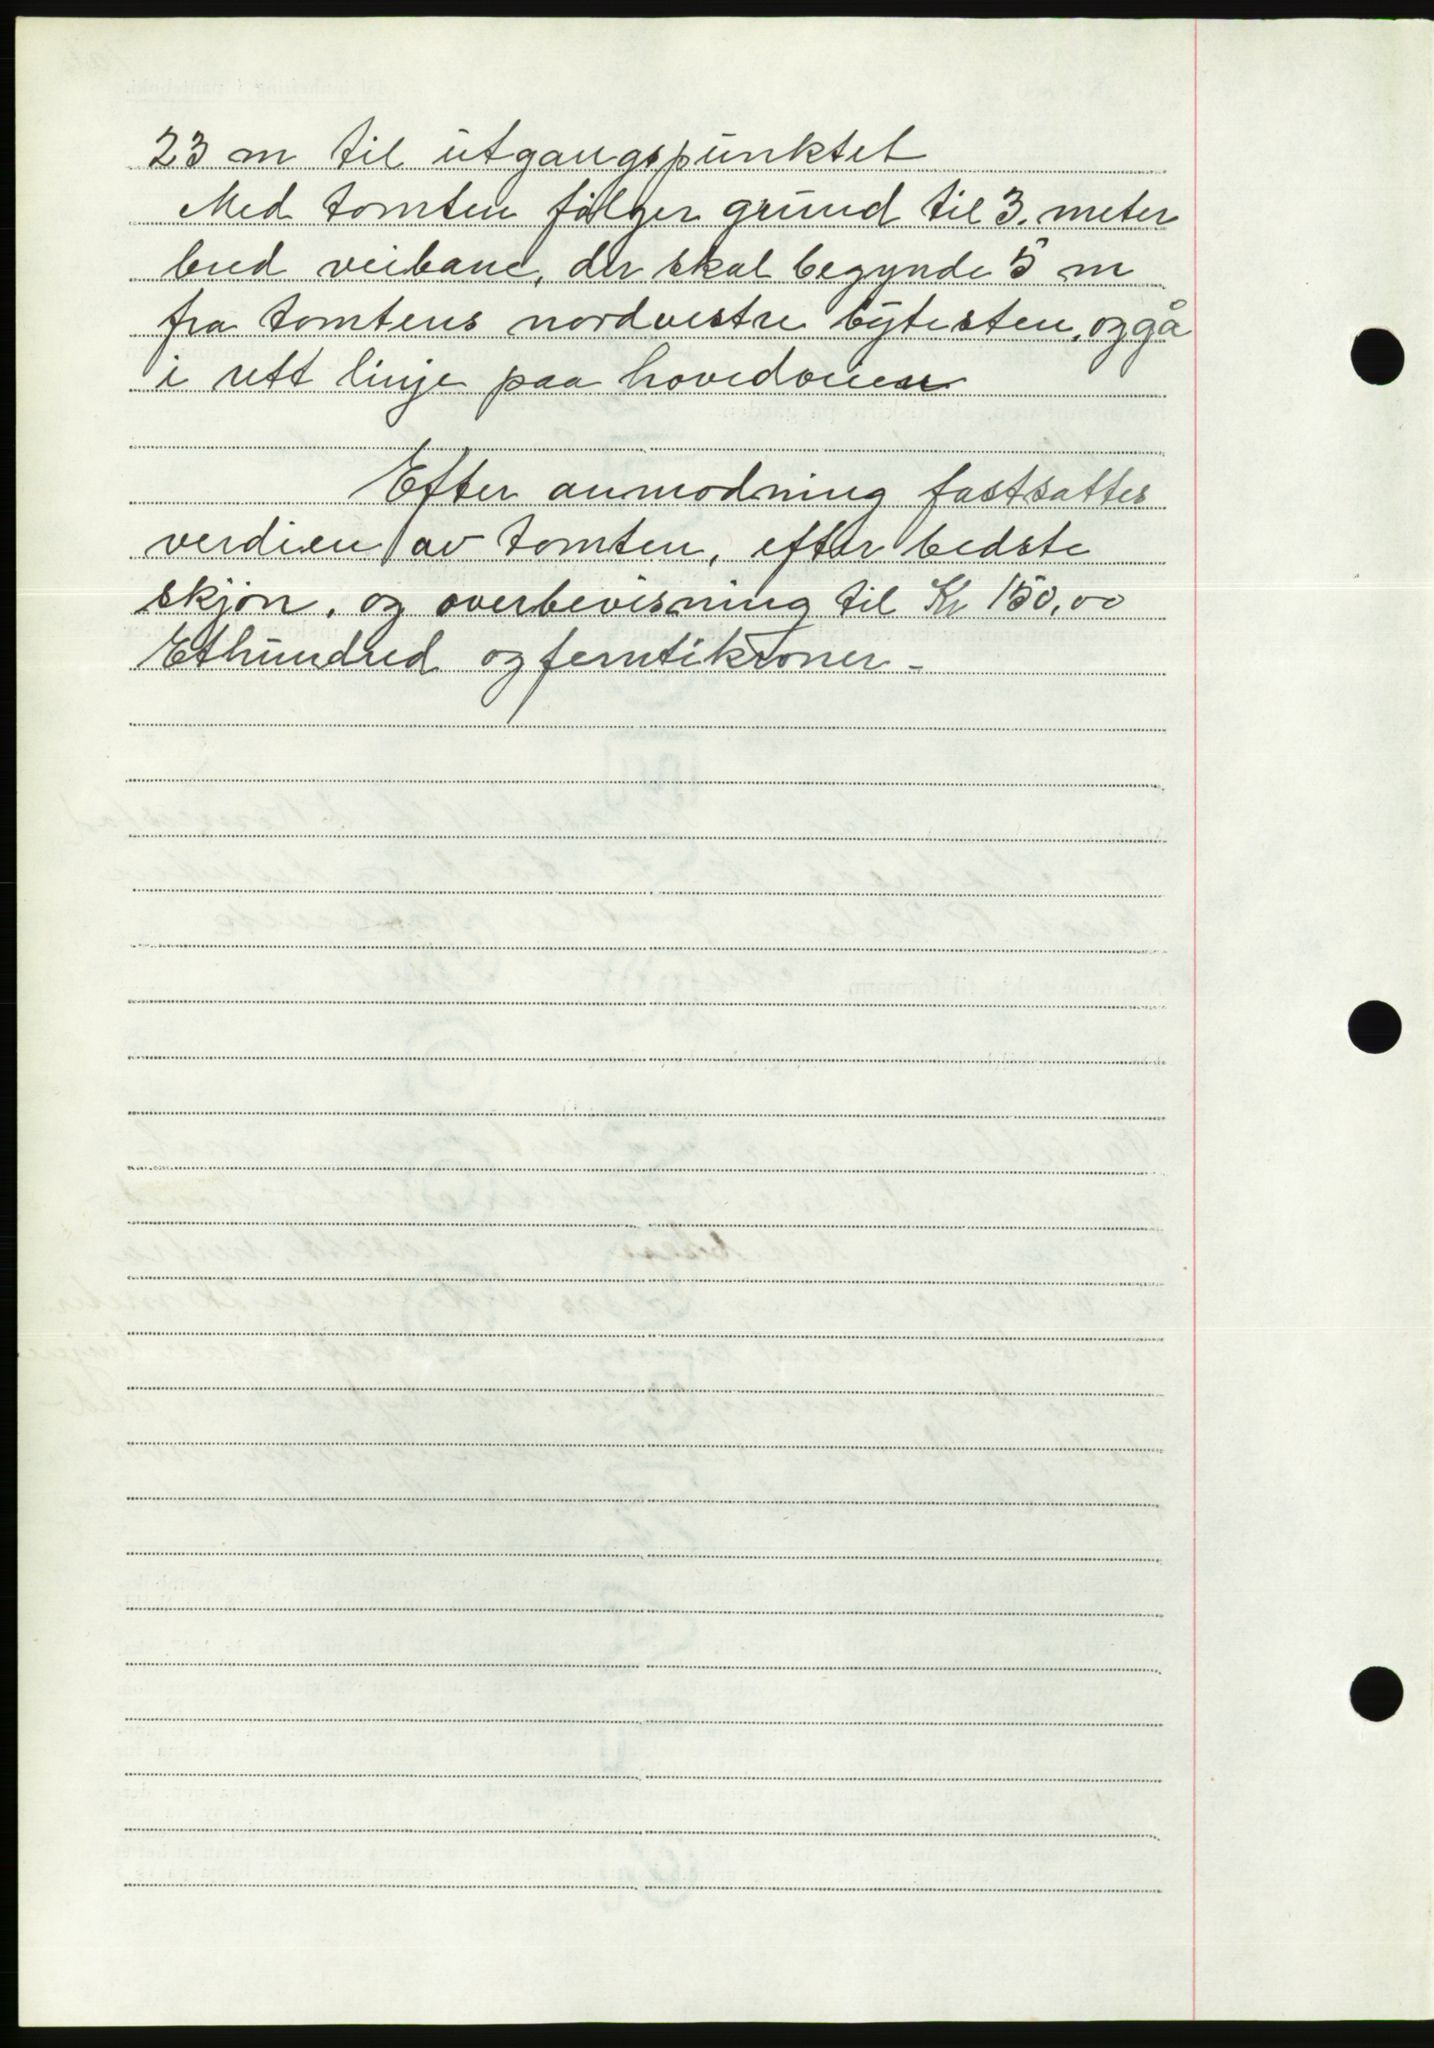 23 m til utgangspunktet
Med tomten følger grund til 3. meter
bred veibane, der skal begynde 5 m
fra tomtens nordvestre bytesten, og gå
i rett linje paa hovedveien
Efter anmodning fastsattes
verdien av tomten, efter bedste
skjøn, og overbevisning til Kr 150,00
Ethundred og femtikroner -